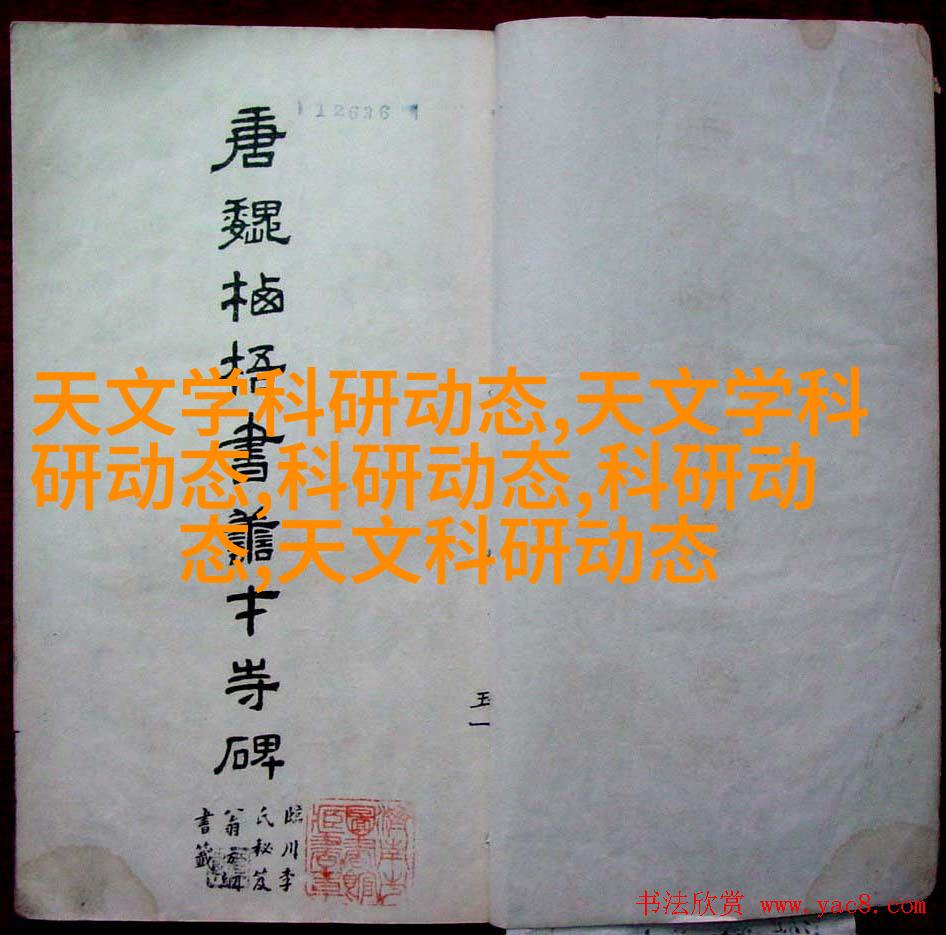 12636
唐魏栖梧書善才寺碑
臨川李
氏秘笈
翁方綱
書籤
玉一
天文学科研动态,天文学科
研动态,科研动态,科研动
态,天文科研动态
书法欣赏 www.yac8.com